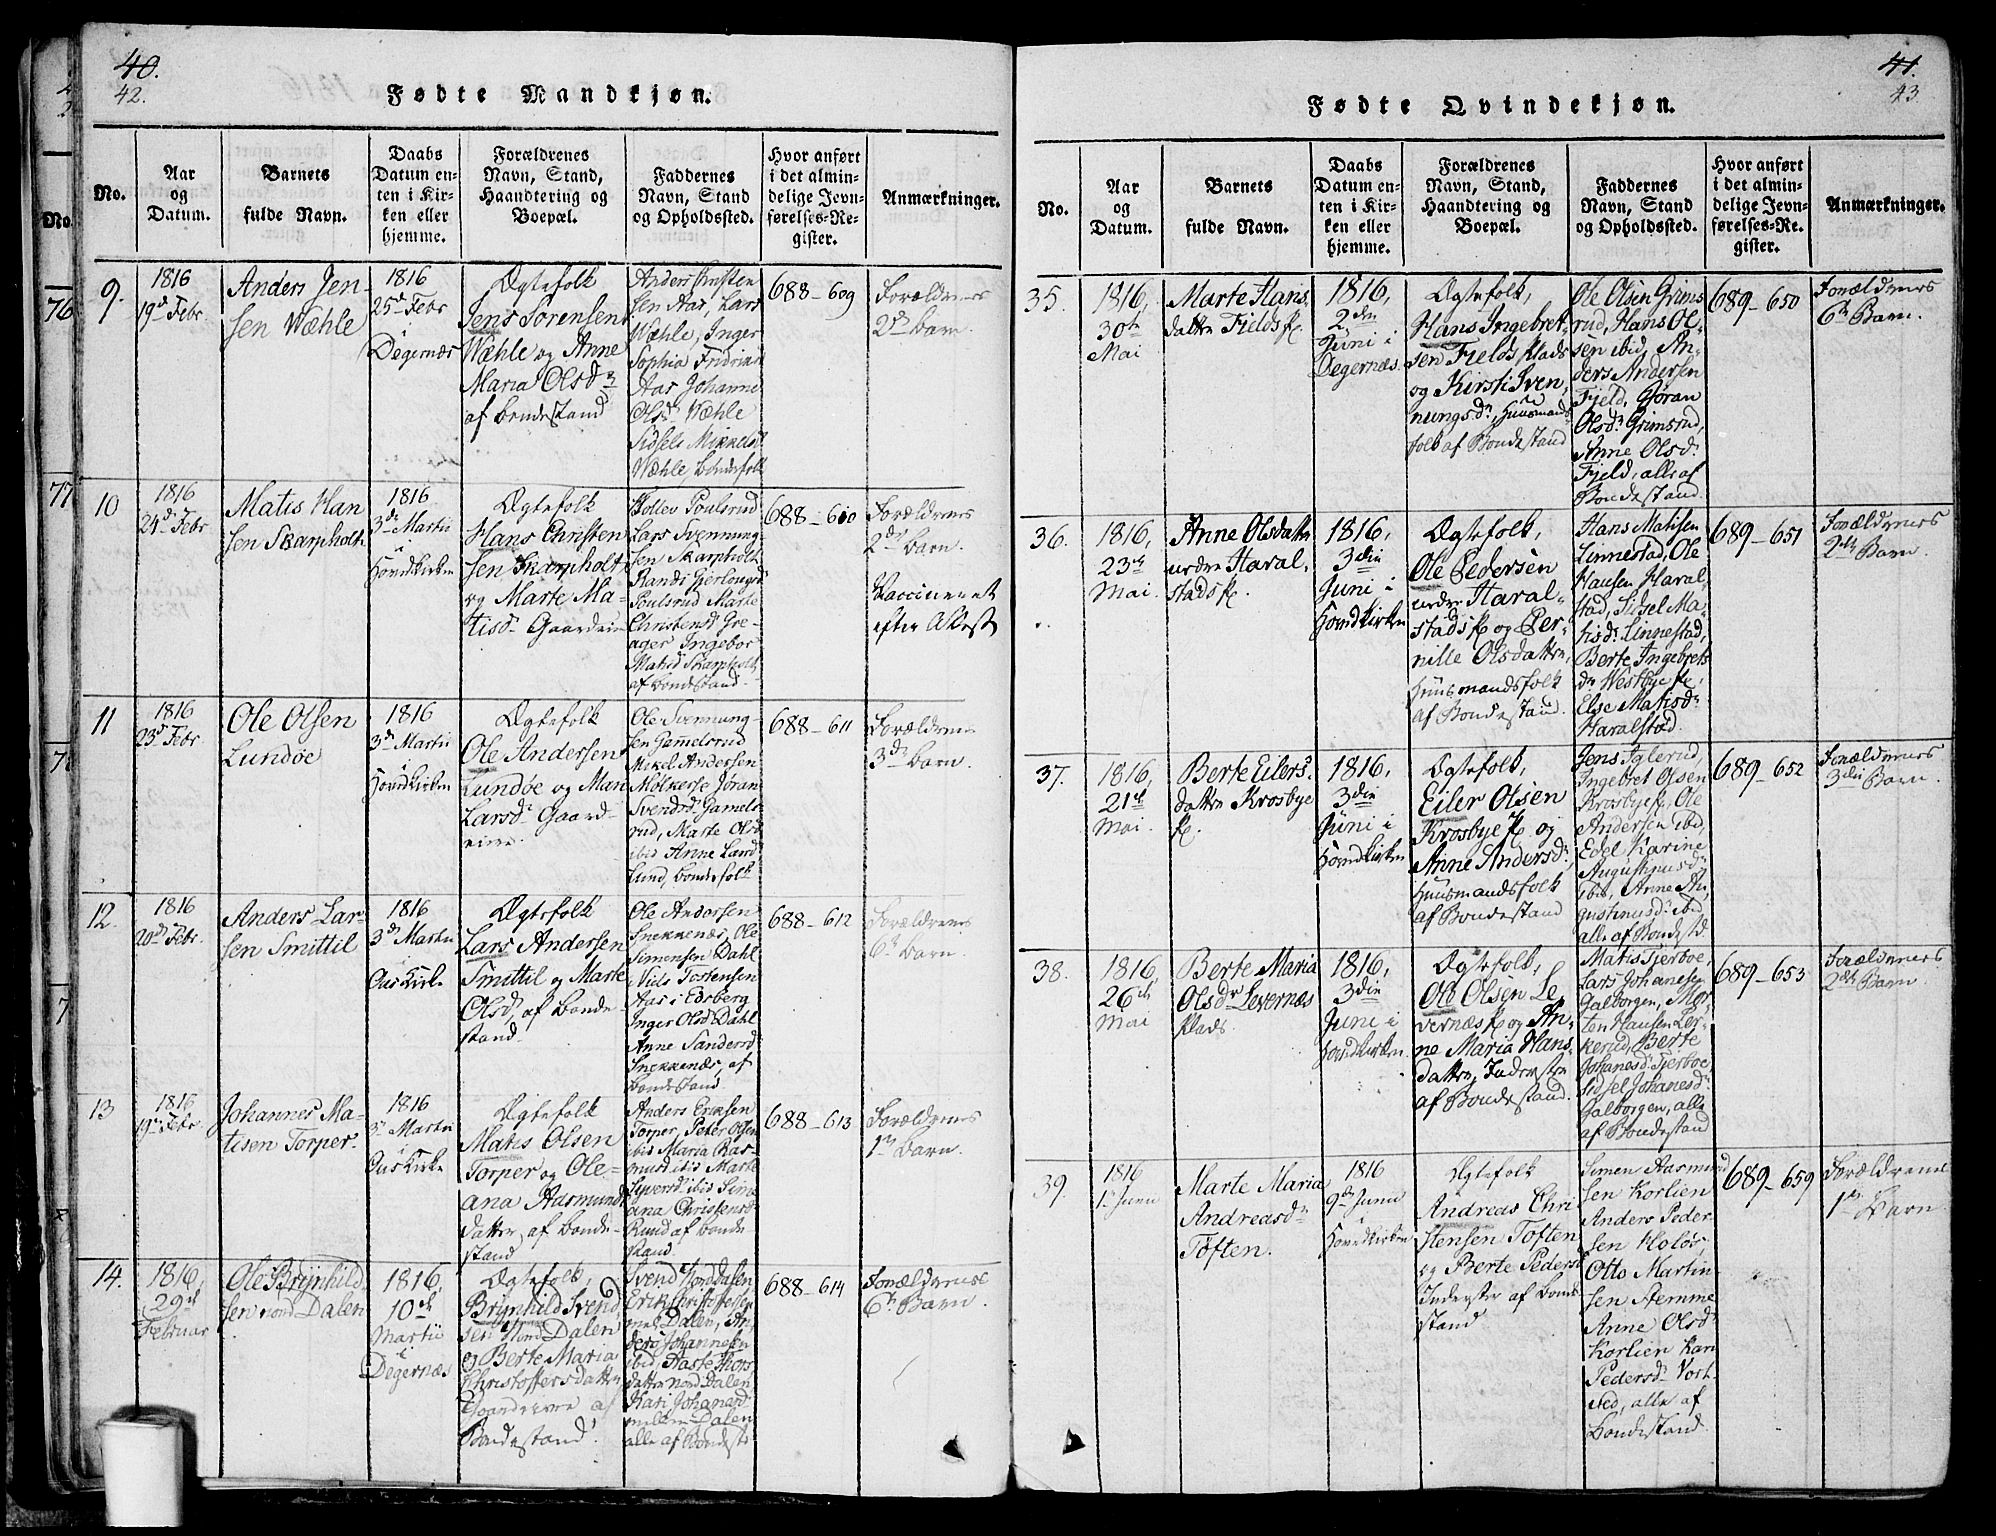 40.
42.
Fødte Mandkjøn.
No.
Aar
og
Datum.
Barnets
fulde Navn.
Daabs
Datum en-
ten i Kir-
ken eller
hjemme.
Forældrenes
Navn, Stand,
Haandtering og
Boepæl.
Faddernes
Navn, Stand
og Opholdssted.
Hvor anført
i det almin-
delige Jevn-
førelses-Re-
gister.
Anmærkninger.
9.
1816
19d Febr
Anders Jen-
sen Wæhle
1816
25d Febr
i
Degernæs
Ægtefolk
Jens Sørensen
Wæhle og Anne
Maria Olsdr
af bondestand
Anders Cristen
sen Aas, Lars
Wæhle, Inger
Sophia Fridric
Aas Johanne
Olsd Wæhle
Sidsele Mikkelsd
Wæhle, bondefolk
688-609
Forældrenes
2d barn.
10
1816
24d Febr
Matis Han
sen Skarpholt
1816
3d Martii
i
Hovedkirken
Ægtefolk
Hans Christen
sen Skarpholt
og Marte Ma-
tisd Gaardeire
Poulsrud
Lars Svennung
sen Skarpholt
Randi
Poulsrud Marte
Christensd Gre-
ager Ingebor
Matisd Skarpholt
af bondestand.
688-610
Forældrenes
2d barn.
Vaccineret
efter Attest
11
1816
23d Febr.
Ole Olsen
Lundøe
1816
3d Martii
i
Hovedkirken
Ægtefolk
Ole Andersen
Lundøe og Mari
Larsd. Gaard-
eiere.
Ole Svennung-
sen Gamelsrud
Mikel Andersen
Mølkerse Jøran
Svendsd Gamels
rud, Marte Olsd
ibid Anne Larsd
Lund, bondefolk
688-611
Forældrenes
3d barn.
12.
1816
20d Febr.
Anders Lar-
sen Smittil
1816
3d Martii
i
Øus Kirke
Ægtefolk
Lars Andersen
Smittil og Marte
Olsd, af bonde-
stand
Ole Andersen
Snekkenæs, Ole
Simensen Dahl
Nids Tostensen
Aas i Edsberg
Inger Olsd Dahl
Anne Sandersd
Snekkenæs, af
bondestand
688-612
Forældrenes
6t barn.
13
1816
19d Febr
Johannes Ma-
tisen Torper.
1816
3d Martii
i
Øus Kirke
Ægtefolk
Matis Olsen
Torper og Ole-
ana Aasmunds
datter, af bonde-
stand
Anders Eriksen
Torper, Peter Olsen
ibid Maria Ras-
musd ibid Marte
Syversd ibid Sim
ana Christensd
Rund af bonde
stand.
688-613
Forældrenes
1t barn.
14.
1816,
29d
Februar
Ole Brynhild
sen nord Dalen
1816,
10de
Martii
i
Degernæs
Ægtefolk,
Brynhild Svend
sen Nord Dalen
og Berte Maria
Christoffersdatter
Gaardeiere af
Bondestand.
Svend Norddalen
Erik Christoffersen
mel: Dalen, An
ders Johannesen
ibid, Aaste Thors
datter nord Dalen
Kari Johanesd
mellem Dalen
alle af Bondest.
688-614
Forældrenes
6te Barn.
41.
43
Fødte Qvindekjøn.
No.
Aar
og
Datum.
Barnets
fulde Navn.
Daabs
Datum en-
ten i Kir-
ken eller
hjemme.
Forældrenes
Navn, Stand,
Haandtering og
Boepæl.
Faddernes
Navn, Stand
og Opholdssted.
Hvor anført
i det almin-
delige Jevn-
førelses-Re-
gister.
Anmærkninger.
35.
1816,
30te
Mai
Marte Hans
datter Fields
1816,
2den
Juni i
Degernæs.
Ægtefolk,
Hans Ingebret-
sen Fields Plads
og Kirsti Sven-
nungsdr, Huusmands
folk af Bondestand
Ole Olsen Grims
rud, Hans Ol-
sen ibid, An-
ders Andersen
Fjeld, Gøran
Olsdr Grimsrud,
Anne Olsdr
Fjeld, alle af
Bondestand
689-650
Forældrenes
6te Barn.
36.
1816,
23de
Mai.
Anne Olsdatter
nedre Haral-
stads
1816,
3die
Juni i
Hovedkirken
Ægtefolk,
Ole Pedersen
nedre Haral-
stads og Per-
nille Olsdatter,
Huusmandsfolk
af Bondestand.
Hans Matisen
Linnestad, Ole
Hansen Haral-
stad, Sidsel Ma-
tisdr Linnestad,
Berte Ingebrets
dr Westbye
Else Matisdr
Haralstad.
689-651
Forældrenes
2det Barn.
37.
1816,
21de
Mai.
Berte Eilers-
datter Krosbye
1816,
3die
Juni i
Hovedkirken
Ægtefolk,
Eiler Olsen
Krosbye og
Anne Andersdr
Huusmandsfolk
af Bondestand
Jens Iglerud,
Ingebret Olsen
Krosbye, Ole
Andersen ibd,
Edel Karine
Augustinusdr
ibd, Anne Au-
gustinusdr ibid
alle af Bondestd.
689-652
Forældrenes
3die Barn.
38.
1816,
26de
Mai
Berte Maria
Olsdr Levernæs
plads.
1816,
3die
Juni i
Hovedkirken
Ægtefolk,
Ole Olsen Le
vernæs og An-
ne Maria Hans
datter, Inderster
af Bondestand.
Matis Tjerboe,
Lars Johanesen
Galborgen, Mor-
ten Hansen Ler-
kerud, Berte
Johanesdr Tjerboe,
Sidsel Johanesdr
Galborgen, alle
af Bondestand
689-653
Forældrenes
2det Barn.
39.
1816
1t Junii
Marte Maria
Andreasdr
Toften.
1816
9de Junii
i
Hovedkirken
Ægtefolk
Andreas Chri
stensen Toften
og Berte Pedersd
Inderster af bonde
stand
Simen Aasmund
sen Korlien
Anders Peder-
sen Holøs,
Otto Martin-
sen Aemme
Anne Olsdr
Korlien Kari
Pedersd.
alle af
bondestand
689-659
Forældrenes
1te Barn.